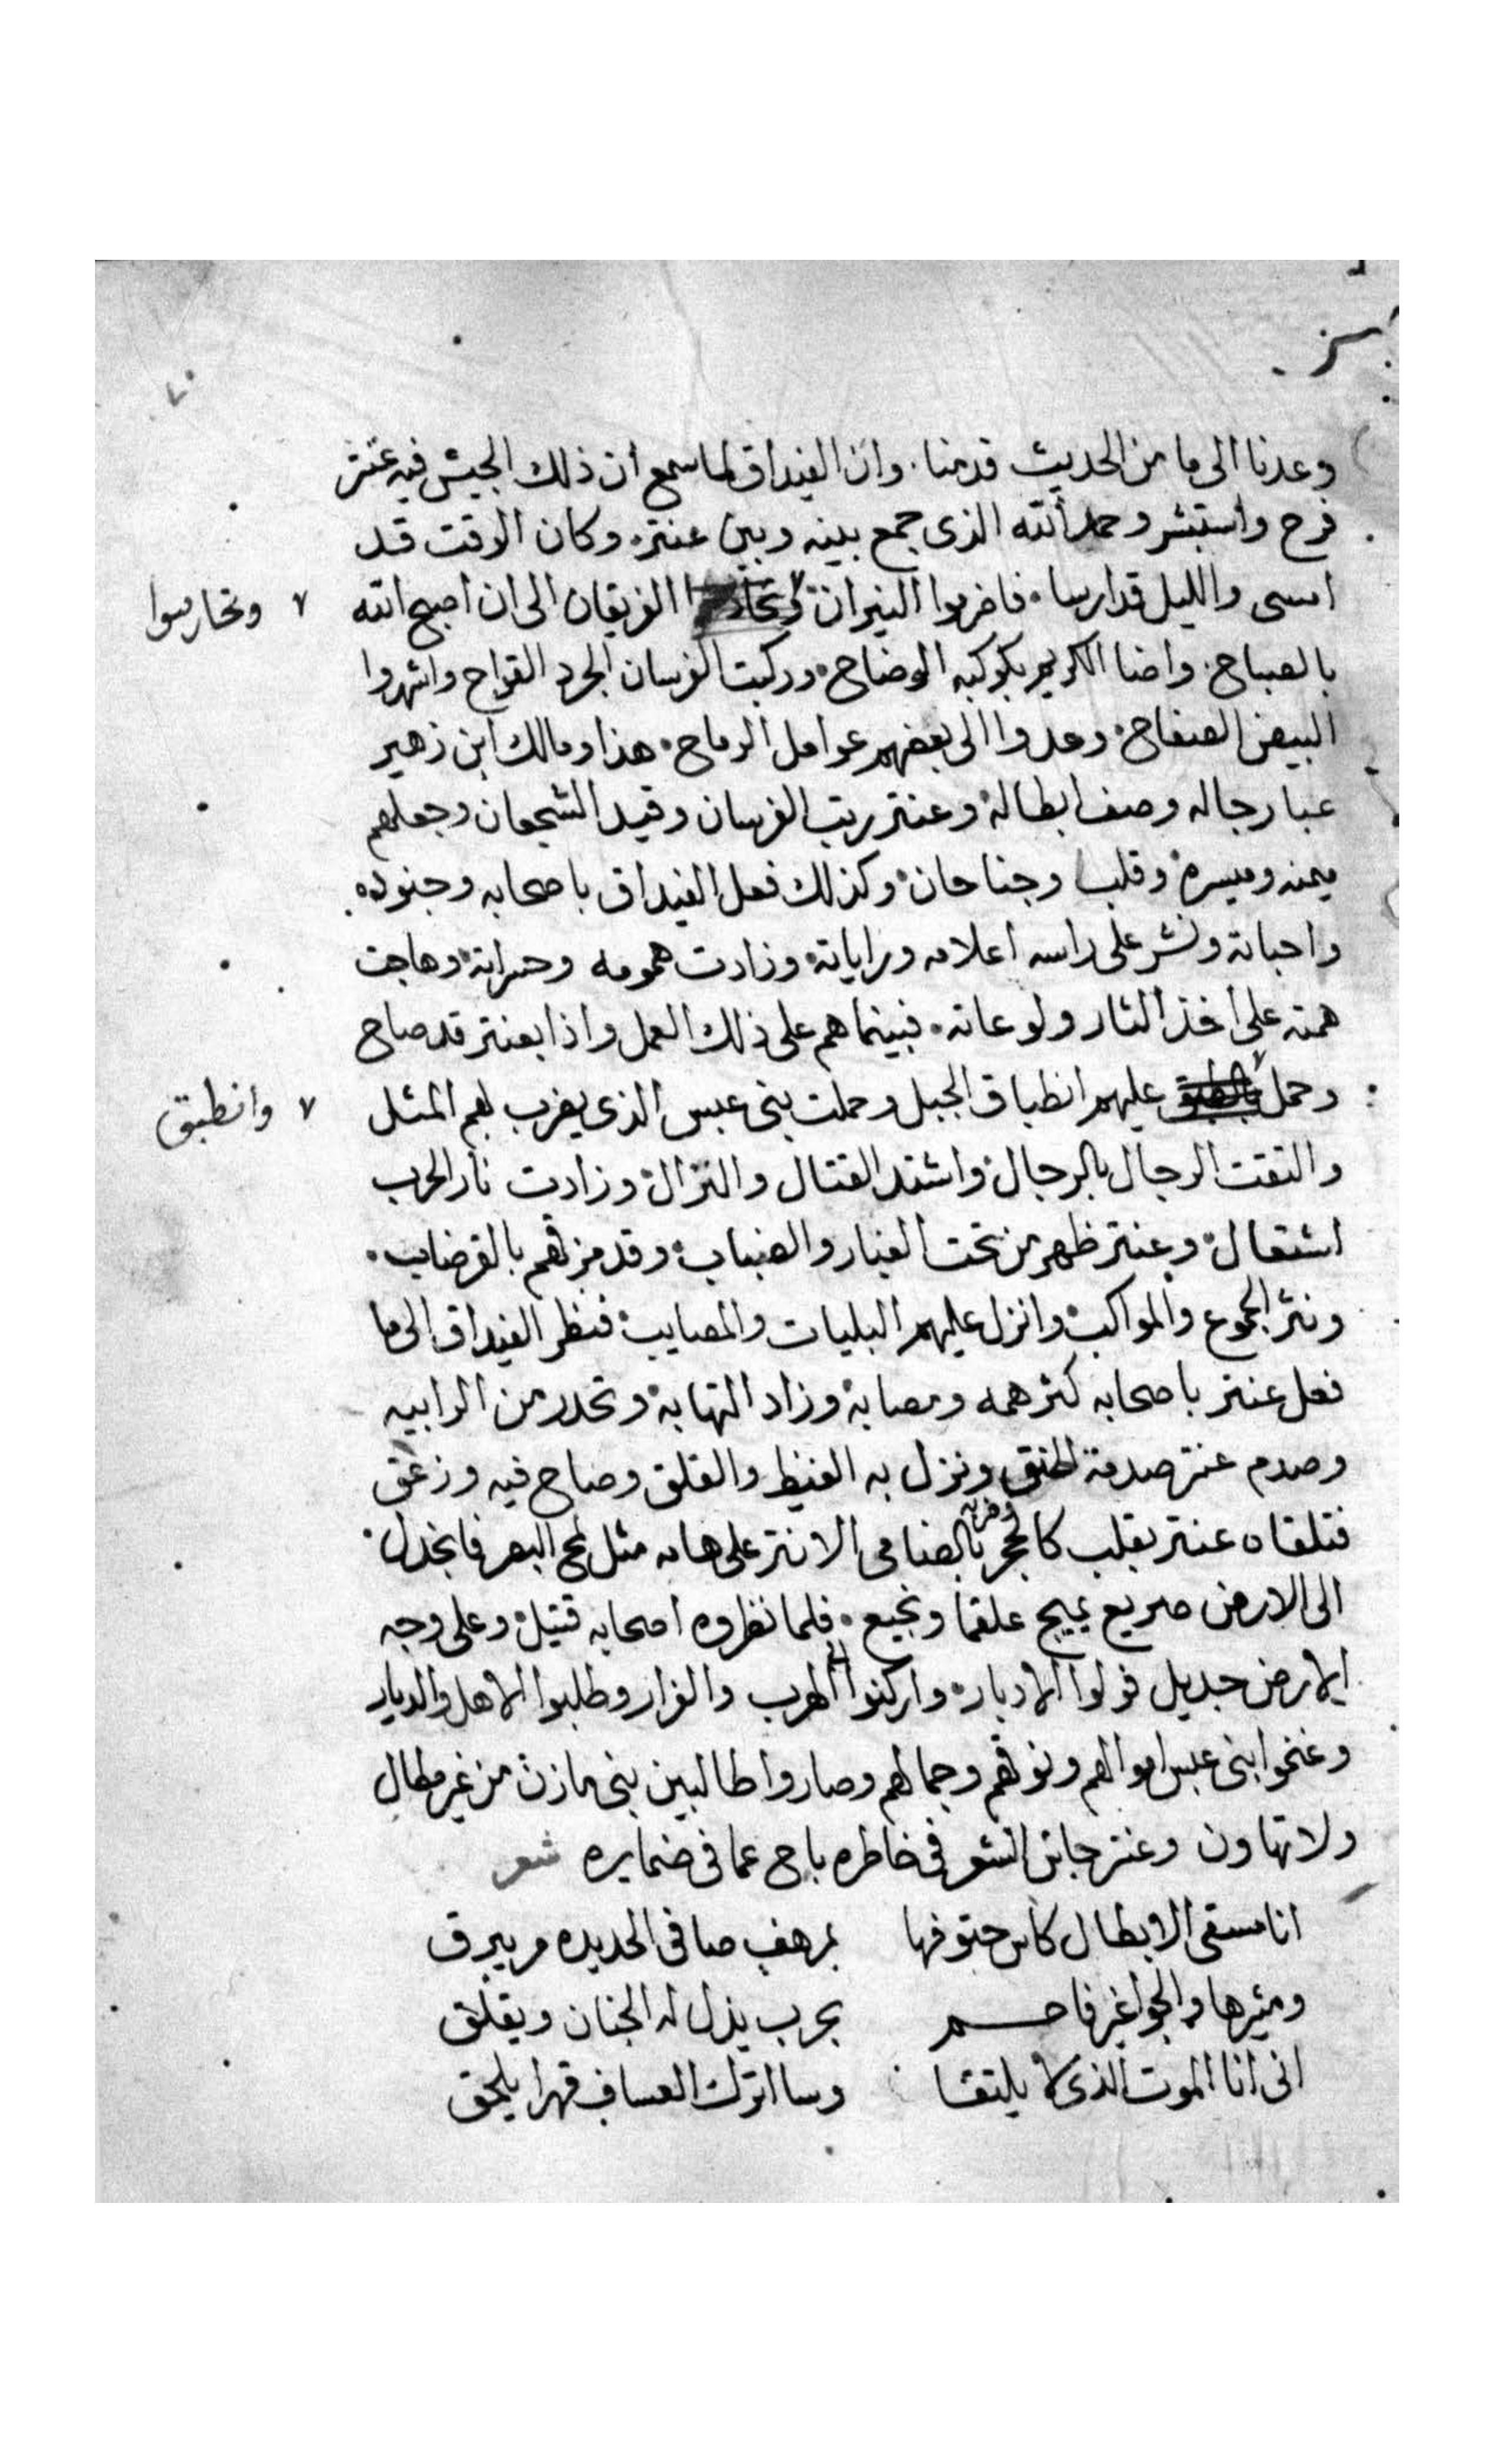 وعدنا الى ما من الحديث قدمنا . وان الغيداق لما سمع ان ذلك الجيش فيه عنتر
فرح واستبشر وحمد الله الذى جمع بينه وبين عنتر. وكان الوقت قد
امسى والليل قد ارسا . فاضرموا النيران الفريقان الى ان اصبح الله
٧ وتحارسوا
بالصباح . واضا الكريم بكوكبه الوضاح . وركبت الفرسان الجرد القراح واشهروا
البيض الصفاح . ومدوا الى بعضهم عوامل الرماح . هذا ومالك ابن زهير
عبا رجاله وصف ابطاله . وعنتر رتب الفرسان وقيد الشجعان وجعلهم
ميمنه وميسرة وقلب وجناحان . وكذلك فعل الغيداق باصحابه وجنوده .
واحباته ونشر على راسه اعلامه وراياته . وزادت همومه وحسراته . وهاجت
همته على اخذ الثار ولوعاته . فبينما هم على ذلك العمل واذا بعنتر قد صاح
وحمل عليهم انطباق الجبل وحملت بنى عبس الذى يضرب بهم المثل
٧ وانطبق
والتقت الرجال بالرجال . واشتد القتال والنزال . وزادت نار الحرب
اشتعال . وعنتر ظهر من تحت الغبار والضباب . وقد مزقهم بالقرضاب .
ونثر الجموع والمواكب . وانزل عليهم البليات والمصايب . فنظر الغيداق الى ما
فعل عنتر باصحابه كثر همه ومصابه . وزاد التهابه . وتحدر من الرابيه
وصدم عنتر صدمة الحنق ونزل به الغيظ والقلق وصاح فيه وزعق
فتلقاه عنتر بقلب كالحجر وضربه بالضامى الابتر على هامه مثل لمح البصر فانجدل .
الى الارض صريع يمج علقما ونجيع . فلما نظروه اصحابه قتيل . وعلى وجه
الارض جديل فولوا الادبار . واركنوا الى الهرب والفرار وطلبوا الاهل والديار
وغنموا بنى عبس اموالهم ونوقهم وجمالهم وصاروا طالبين بنى مازن من غير مطال
ولا تهاون وعنتر جاش الشعر فى خاطره باح عما فى ضمايره شعر
انا مسقى الابطال كاس حتوفها بمرهف صافى الحديده مر يبرق
ومثيرها والجو اغبر فاحم بحرب يذل له الجنان ويقلق
انى انا الموت الذى لا يلتقا وسا اترك العساف قهرا يلحق